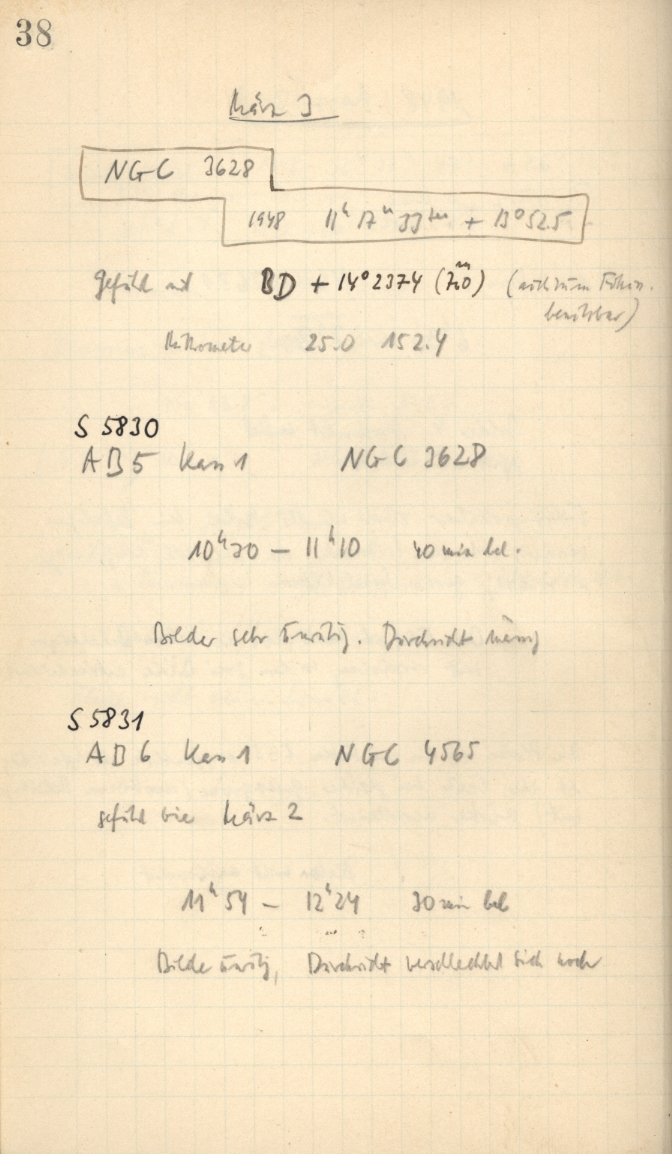 38
März 3
NGC 3628
1948 11h 17m 33sec + 13° 52.5
Geführt mit BD + 14° 2374 (7m0) (auch zum
benützbar)
Mikrometer 25.0 152.4
S 5830
AB 5 Kass 1 NGC 3628
10h 30 – 11h 10 40 min bel.
Bilder sehr unruhig. Durchsicht mässig
S 5831
AB 6 Kass 1 NGC 4565
geführt wie März 2
11h 54 – 12h 24 30 min bel
Bilder unruhig, Durchsicht verschlechtert sich noch